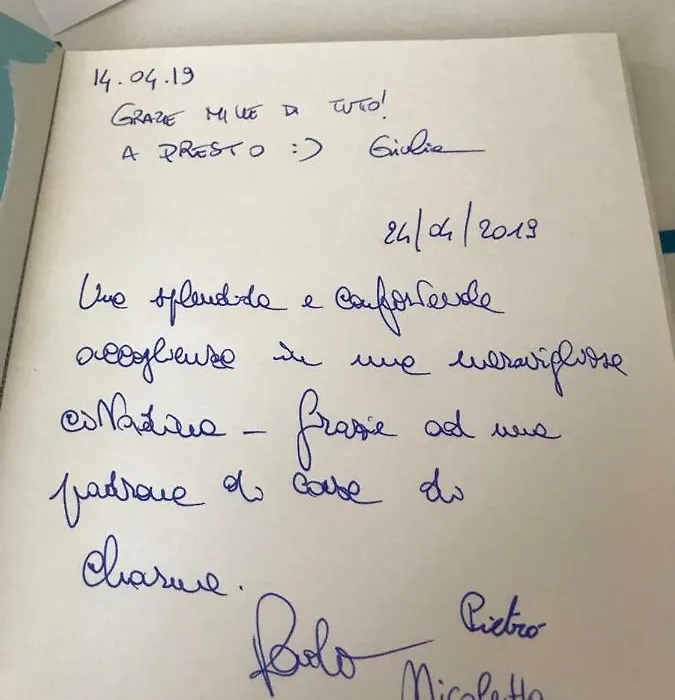 14.04.19
GRAZIE MILLE DI TUTO!
A PRESTO :) Giulia
24/04/2019
Una splendida e confortevole
accoglienza in una meravigliosa
cittadina – Grazie ad una
padrona di casa di
charme.
Pietro
Paolo
Nicoletta